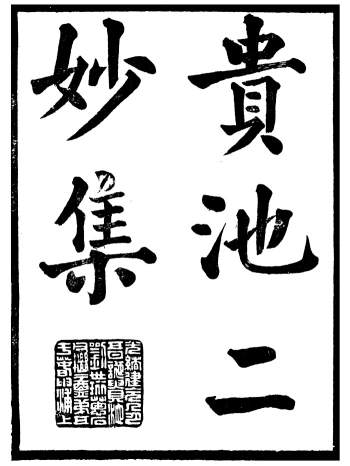 貴池二
妙集